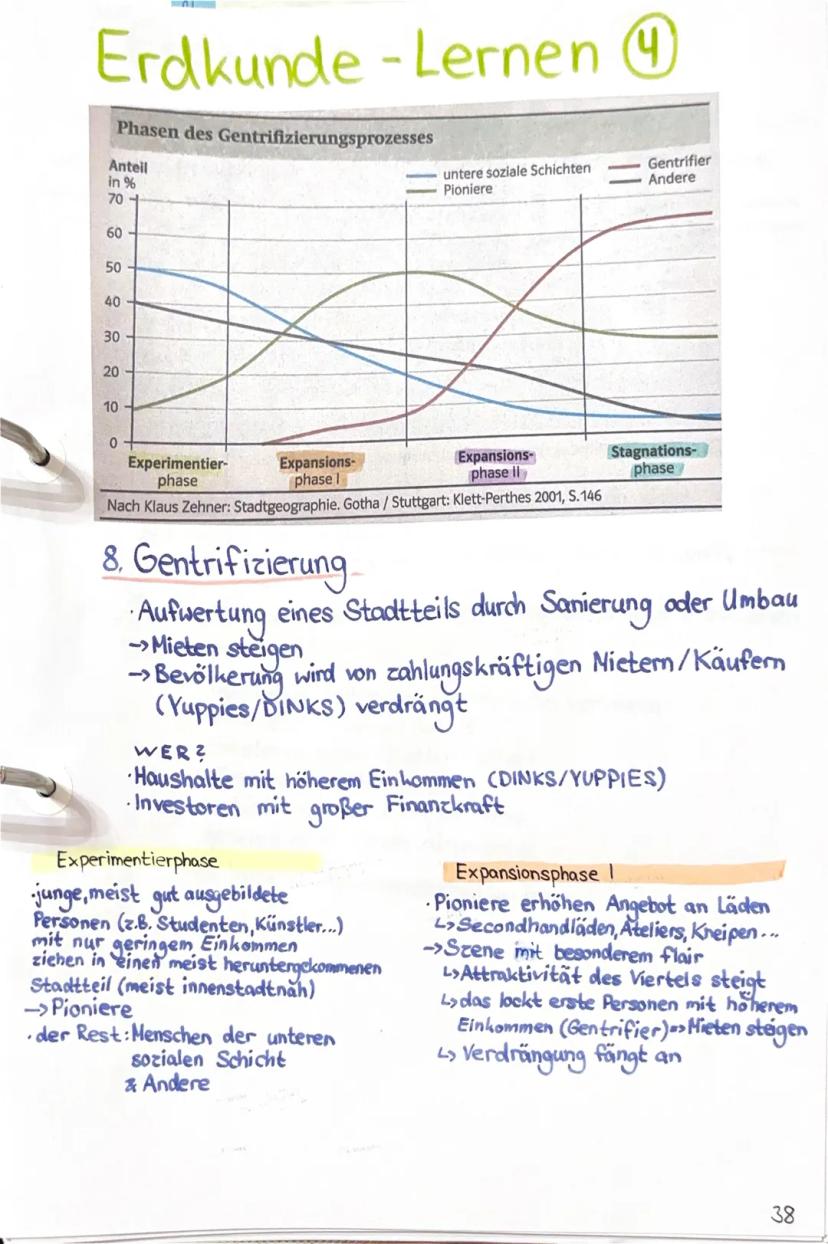 Erdkunde - Lernen 4
Phasen des Gentrifizierungsprozesses
Anteil
in %
untere soziale Schichten
Pioniere
Gentrifier
Andere
70
60
50
40
30
20
10
0
Experimentier-
phase
Expansions-
phase I
Expansions-
phase II
Stagnations-
phase
Nach Klaus Zehner: Stadtgeographie. Gotha / Stuttgart: Klett-Perthes 2001, S.146
8. Gentrifizierung
· Aufwertung eines Stadtteils durch Sanierung oder Umbau
→ Mieten steigen
→ Bevölkerung wird von zahlungskräftigen Mietern/Käufern
(Yuppies/DINKS) verdrängt
WER?
· Haushalte mit höherem Einkommen (DINKS/YUPPIES)
· Investoren mit großer Finanzkraft
Experimentierphase
· junge, meist gut ausgebildete
Personen (z.B. Studenten, Künstler...)
mit nur geringem Einkommen
ziehen in einen meist heruntergekommenen
Stadtteil (meist innenstadtnah)
→ Pioniere
· der Rest: Menschen der unteren
sozialen Schicht
& Andere
Expansionsphase I
· Pioniere erhöhen Angebot an Läden
↳ Secondhandläden, Ateliers, Kneipen...
→ Szene mit besonderem flair
↳ Attraktivität des Viertels steigt
↳ das lockt erste Personen mit höherem
Einkommen (Gentrifier) => Mieten steigen
↳ Verdrängung fängt an
38